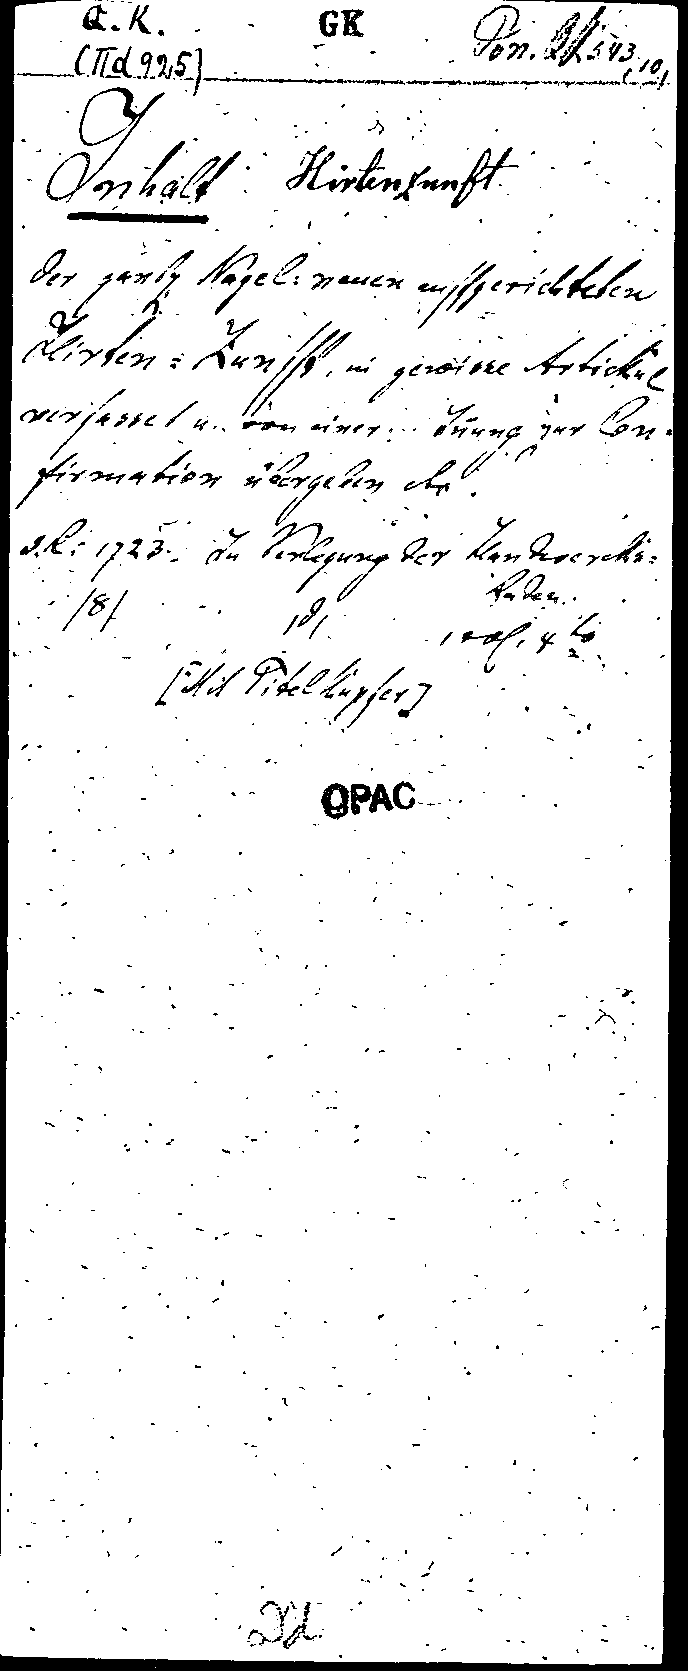 Q.K. GK Pon. 543,10,
(IId 925)
Inhalt Hirtenzunft
Der gantz Nagel-neuen auffgerichteten
Hirten=Zunfft, in gewisse Artickul
verfasset u. von einer Innung zur Con-
firmation übergeben
1723. In Verlegung der Handwercks=
Laden.
/8/ 4to
[Mit Titelkupfer]
OPAC